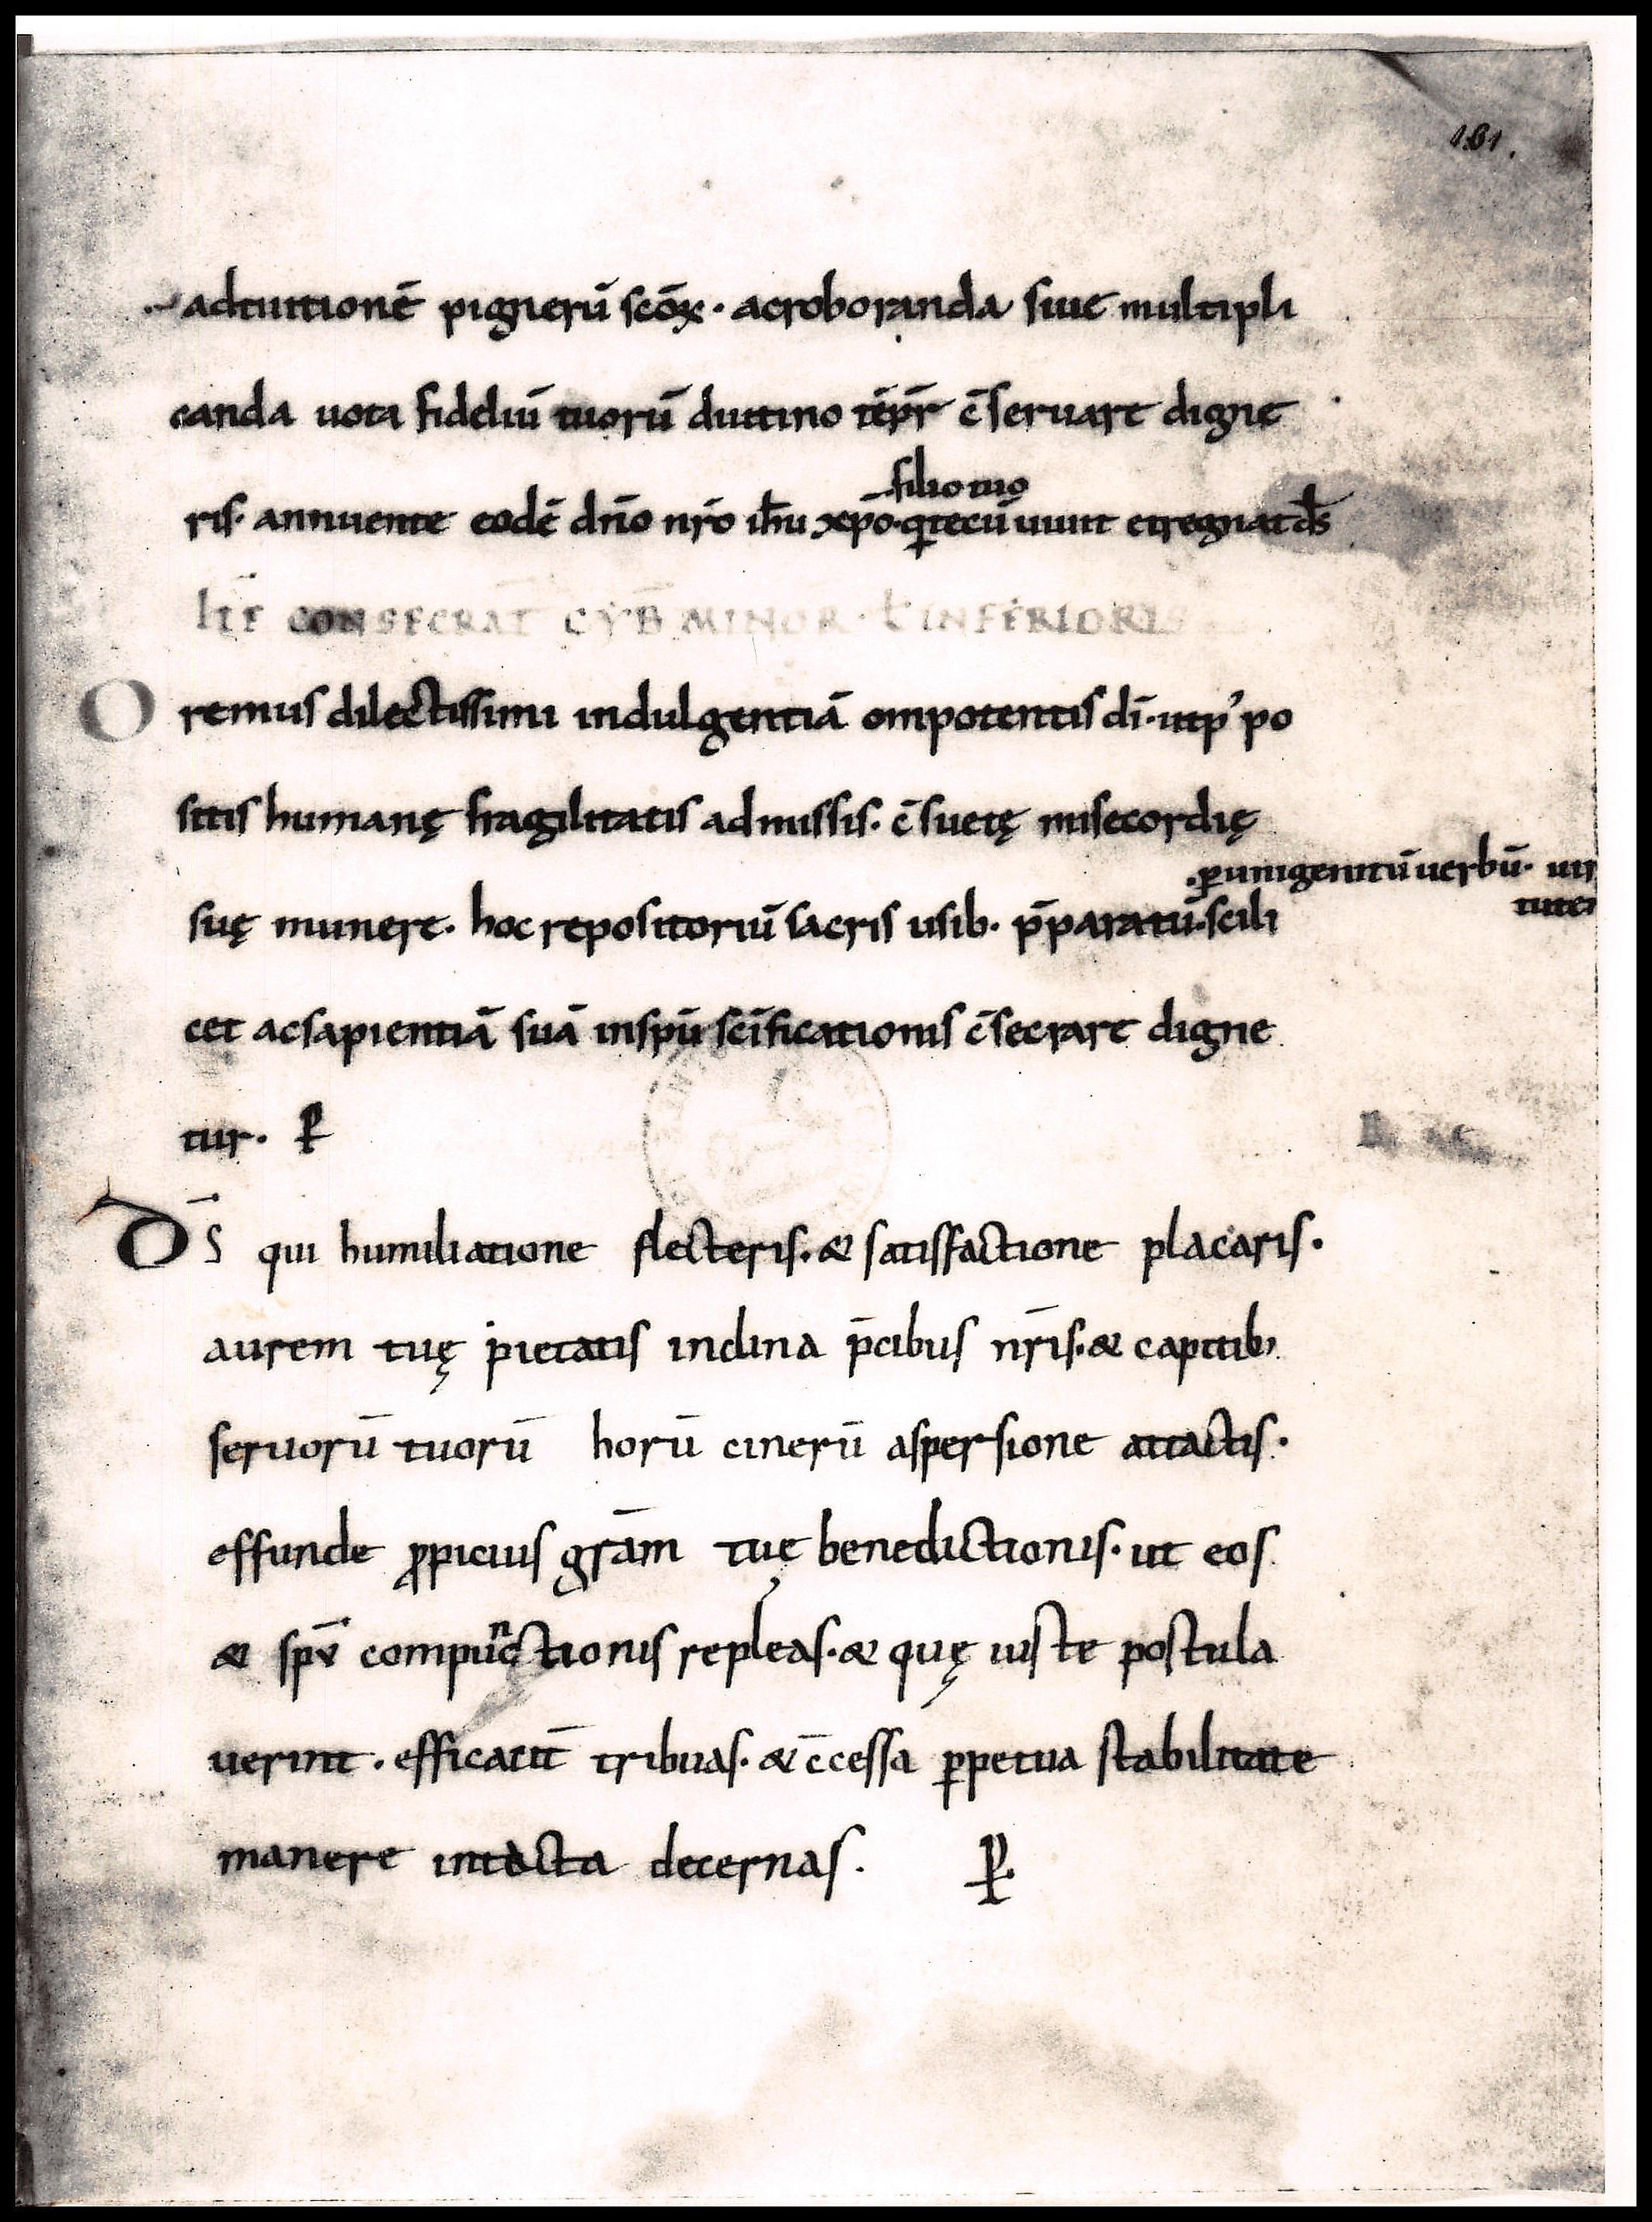 161.
adtuitionē pignerū scōꝝ · acroboranda siue multipli
canda uota fideliū tuorū diutino tēpr̄ c̄seruare digne
ris · annuente eodē dn̄o nr̄o ih̄u xp̄o · qtecū uiuit etregnat ds̄
filio tuo
CONSECRAT CYB̄ MINOR · ł INFERIORIS
Oremus dilectissimi indulgentiā omipotentis dī · utp᾽po
sitis humanę fragilitatis admissis · c̄suetę misecordię
·ꝑunigenitū uerbū · uir
tutē
suę munere · hoc repositoriū sacris usib · p̄paratū · scili
cet acsapientiā suā inspū sc̄ificationis c̄secrare digne
tur · P
D̄S qui humiliatione flecteris · & satisfactione placaris ·
aurem tuę pietatis inclina p̄cibus nr̄is · & capitib;
seruorū tuorū horū cinerū aspersione attactis ·
effunde ꝓpicius gr̄am tuę benedictionis · ut eos
& spv̄ compunctionis repleas · & quę iuste postula
uerint · efficatit̄ tribuas · & c̄cessa ꝑpetua stabilitate
manere intacta decernas · P